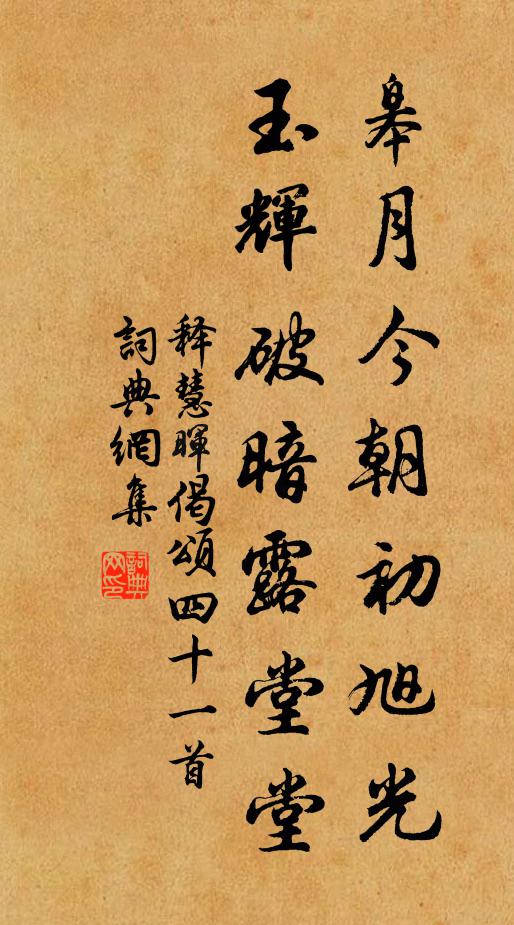 皋月今朝初旭光
玉輝破暗露堂堂
释慧暉偈頌四十一首
詞典網集
詞典网印